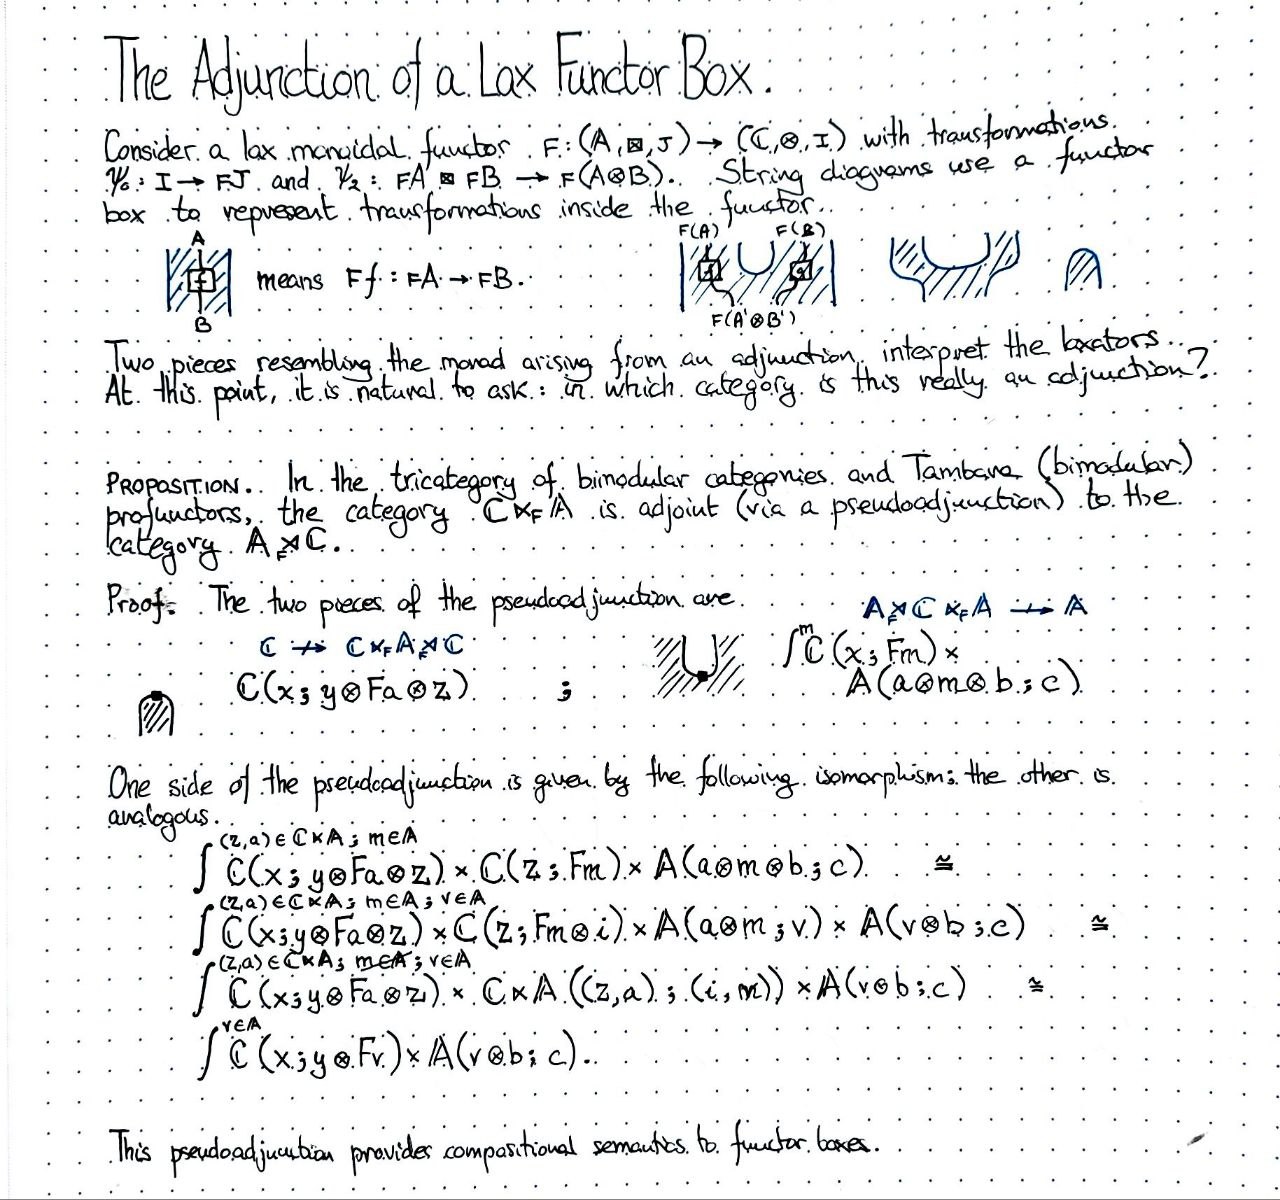 The Adjunction of a Lax Functor Box.
Consider a lax monoidal functor F: (𝔸, ⊠, J) → (ℂ, ⊗, I) with transformations
ψ₀: I → FJ and ψ₂: FA ⊠ FB → F(A⊗B). String diagrams use a functor
box to represent transformations inside the functor.
A
f
B
means Ff : FA → FB.
F(A) F(B)
f g
F(A'⊗B')
Two pieces resembling the monad arising from an adjunction interpret the laxators.
At this point, it is natural to ask: in which category is this really an adjunction?
PROPOSITION. In the tricategory of bimodular categories and Tambara (bimodular)
profunctors, the category ℂ⋊_F 𝔸 is adjoint (via a pseudoadjunction) to the
category 𝔸 _F⋉ ℂ.
Proof. The two pieces of the pseudoadjunction are
ℂ ⇸ ℂ⋊_F 𝔸 _F⋉ ℂ
ℂ(x; y⊗Fa⊗z) ;
𝔸 _F⋉ ℂ ⋊_F 𝔸 ⇸ 𝔸
∫^m ℂ(x; Fm) ×
𝔸(a⊗m⊗b; c)
One side of the pseudoadjunction is given by the following isomorphism; the other is
analogous.
∫^{(z,a)∈ℂ⋉𝔸; m∈𝔸} ℂ(x; y⊗Fa⊗z) × ℂ(z; Fm) × 𝔸(a⊗m⊗b; c) ≅
∫^{(z,a)∈ℂ⋉𝔸; m∈𝔸; v∈𝔸} ℂ(x; y⊗Fa⊗z) × ℂ(z; Fm⊗i) × 𝔸(a⊗m; v) × 𝔸(v⊗b; c) ≅
∫^{(z,a)∈ℂ⋉𝔸; m∈𝔸; v∈𝔸} ℂ(x; y⊗Fa⊗z) × ℂ⋉𝔸((z,a); (i,m)) × 𝔸(v⊗b; c) ≅
∫^{v∈𝔸} ℂ(x; y⊗Fv) × 𝔸(v⊗b; c).
This pseudoadjunction provides compositional semantics to functor boxes.